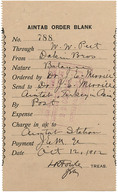 AINTAB ORDER BLANK
No. 788
Through W. W. Peet
From Dale Bros
Nature Balance
Ordered by Dr. J. E. Merrill
Send to Dr. J. E. Merrill
Aintab, Turkey in Asia
By Post
Expense
Charge in a/c to
Aintab Station
Payment
Date Oct 12 1912
TREAS.